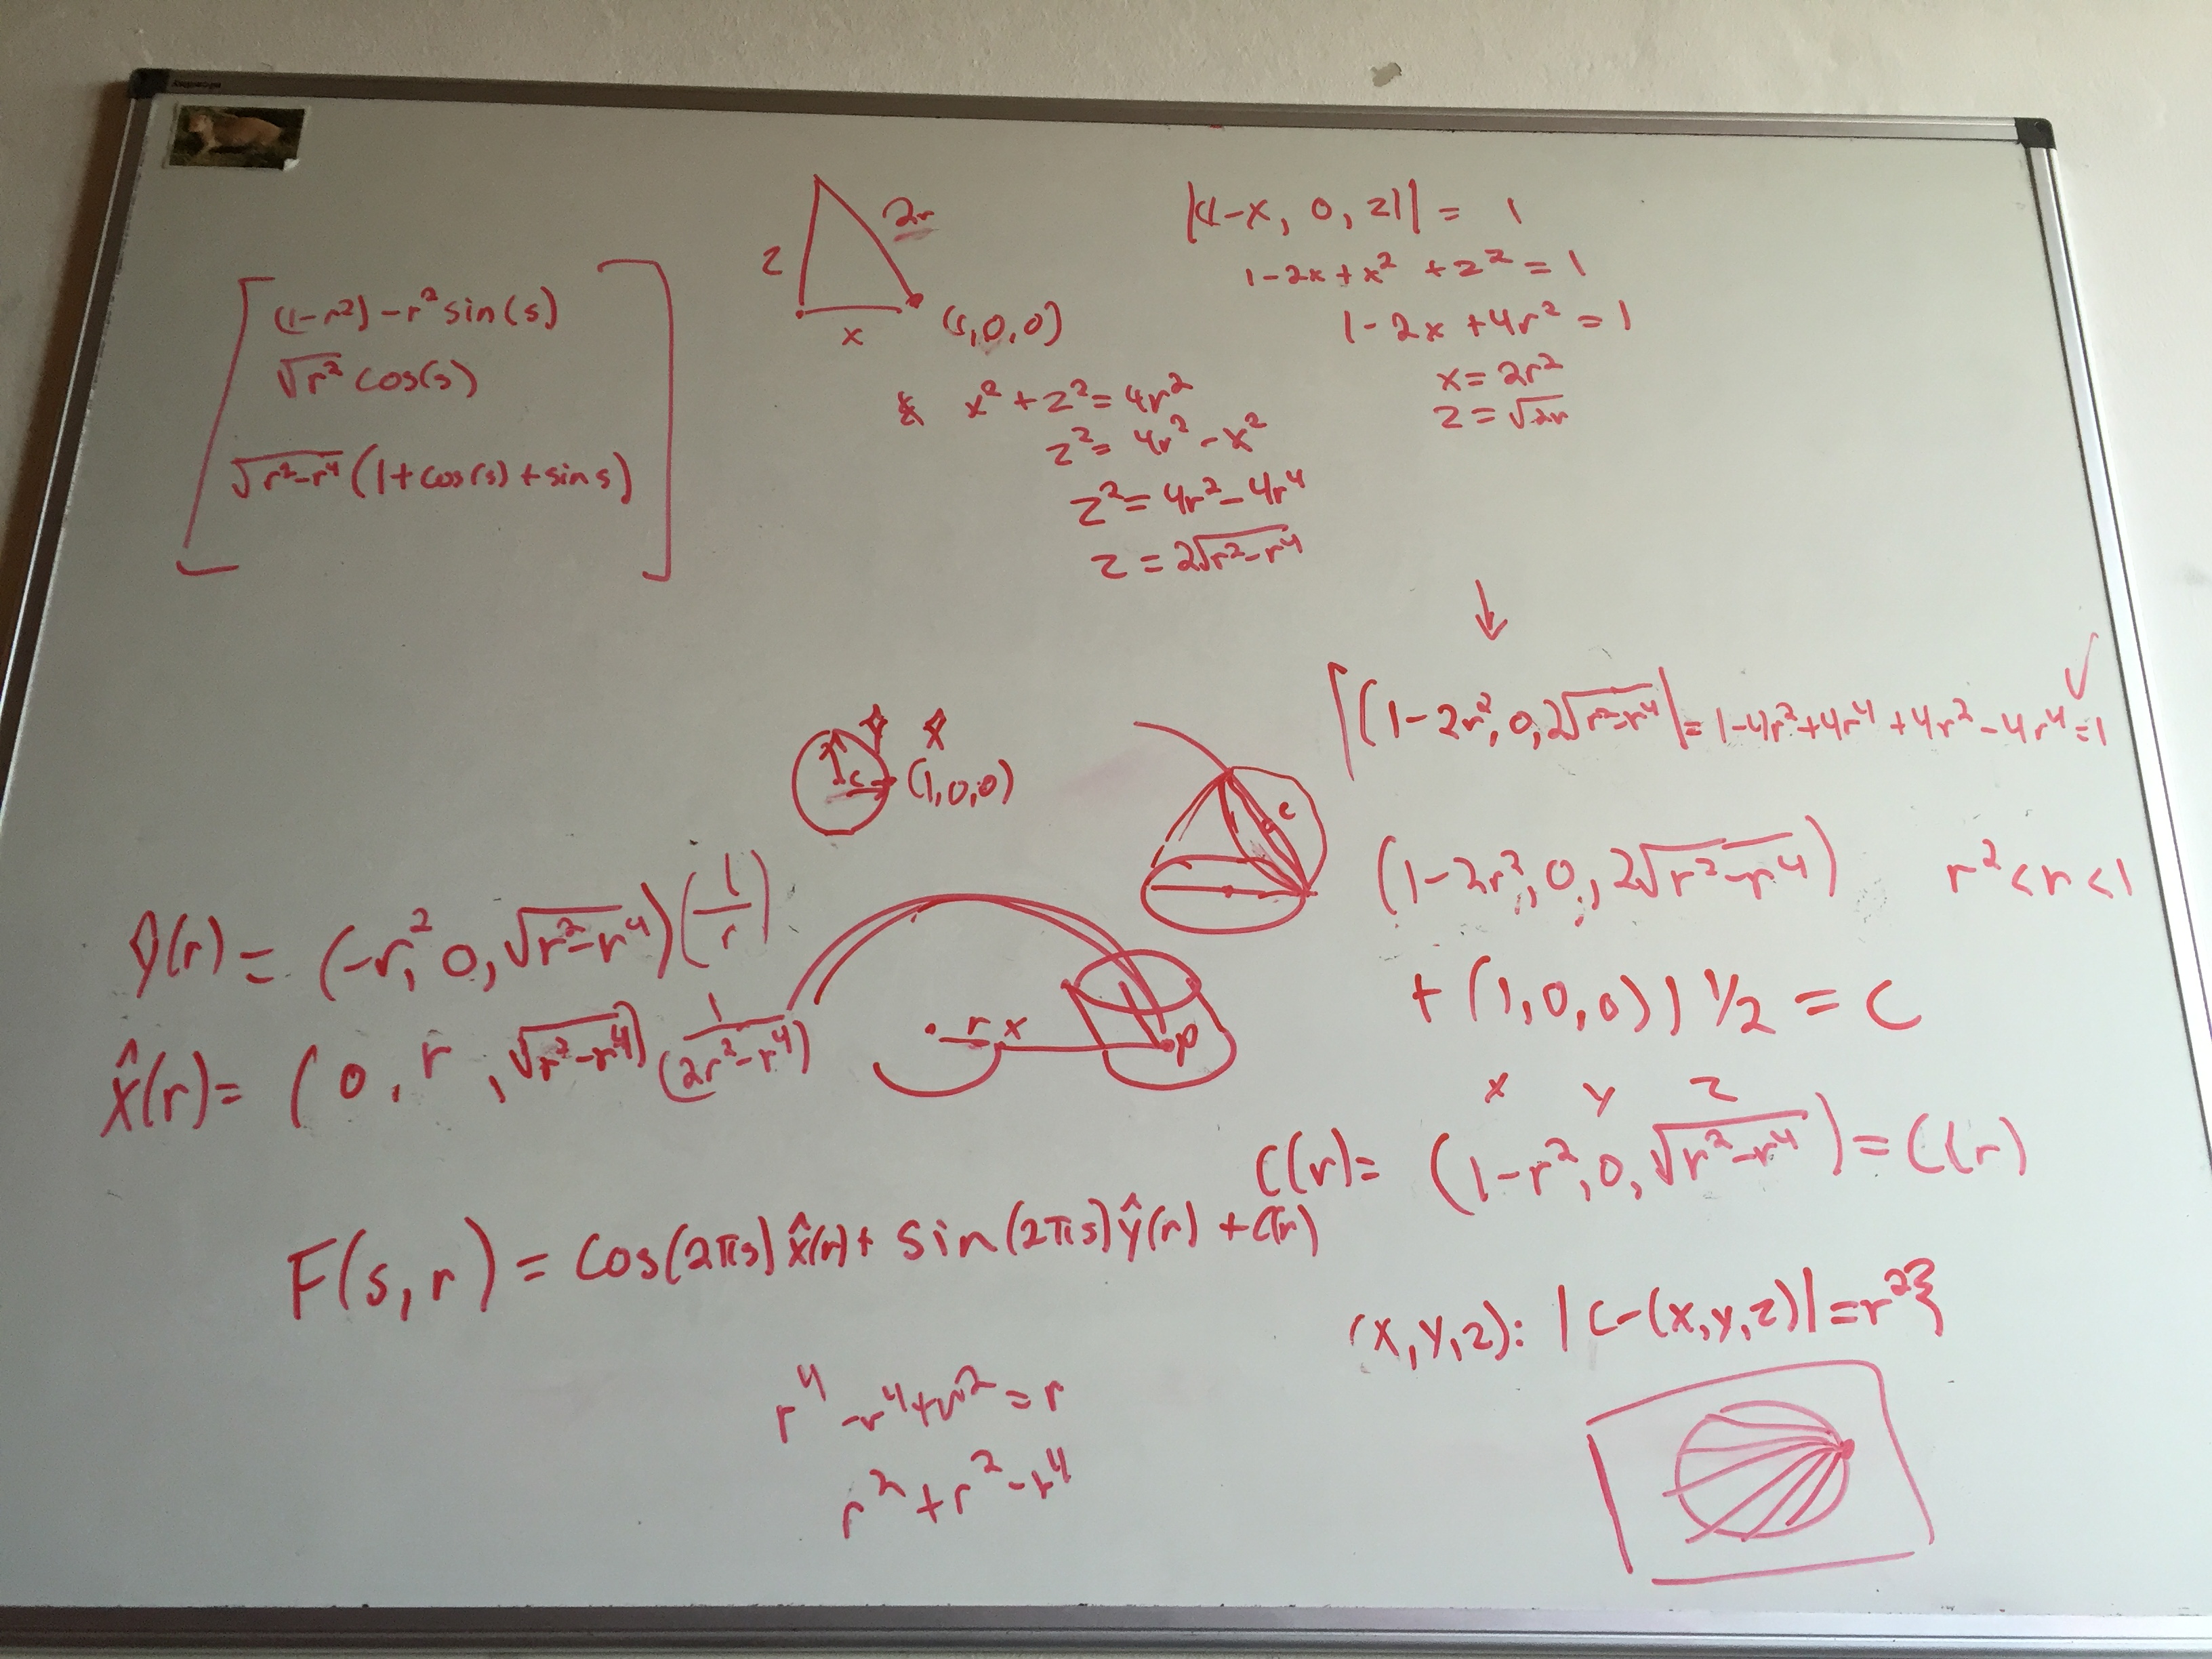 (1-r²) - r² sin(s)
√r² cos(s)
√r²-r⁴ (1+cos(s)+sin s)
2r
z
x
(1,0,0)
x² + z² = 4r²
z² = 4r² - x²
z² = 4r² - 4r⁴
z = 2√r²-r⁴
|(1-x, 0, z)| = 1
1-2x+x² + z² = 1
1-2x+4r² = 1
x = 2r²
z = √2r
↓
|(1-2r², 0, 2√r²-r⁴| = 1-4r²+4r⁴+4r²-4r⁴=1 ✓
c (1,0,0)
c
(1-2r², 0, 2√r²-r⁴) r² < r < 1
+ (1,0,0)) 1/2 = C
ŷ(r) = (-r², 0, √r²-r⁴)(1/r)
x̂(r) = (0, r, √r²-r⁴) 1/(2r²-r⁴)
r x
p
x y z
C(r) = (1-r², 0, √r²-r⁴) = C(r)
F(s,r) = cos(2πs) x̂(r) + sin(2πs) ŷ(r) + C(r)
(x,y,z): |C-(x,y,z)| = r²}
r⁴ -r⁴+r² = r
r² + r² - r⁴